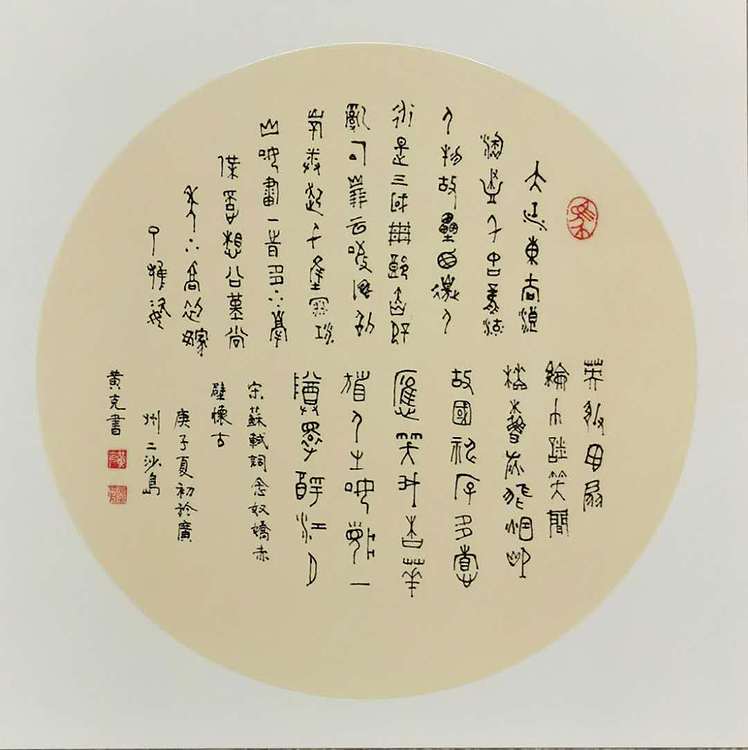 大江東去浪
淘盡千古風流
人物故壘西邊人
道是三國周郎赤壁
亂石崩雲驚濤裂
岸捲起千堆雪江
山如畫一時多少豪
傑遙想公瑾當
年小喬初嫁
了雄姿
英發羽扇
綸巾談笑間
檣櫓灰飛烟滅
故國神遊多情
應笑我早生華
髮人生如夢一
樽還酹江月
宋蘇軾詞念奴嬌赤
壁懷古
庚子夏初於廣
州二沙島
黃克書